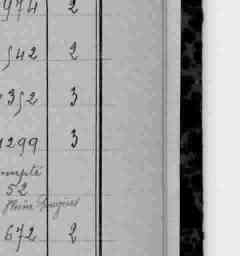 974 2
542 2
352 3
1299 3
compté
52
672 2